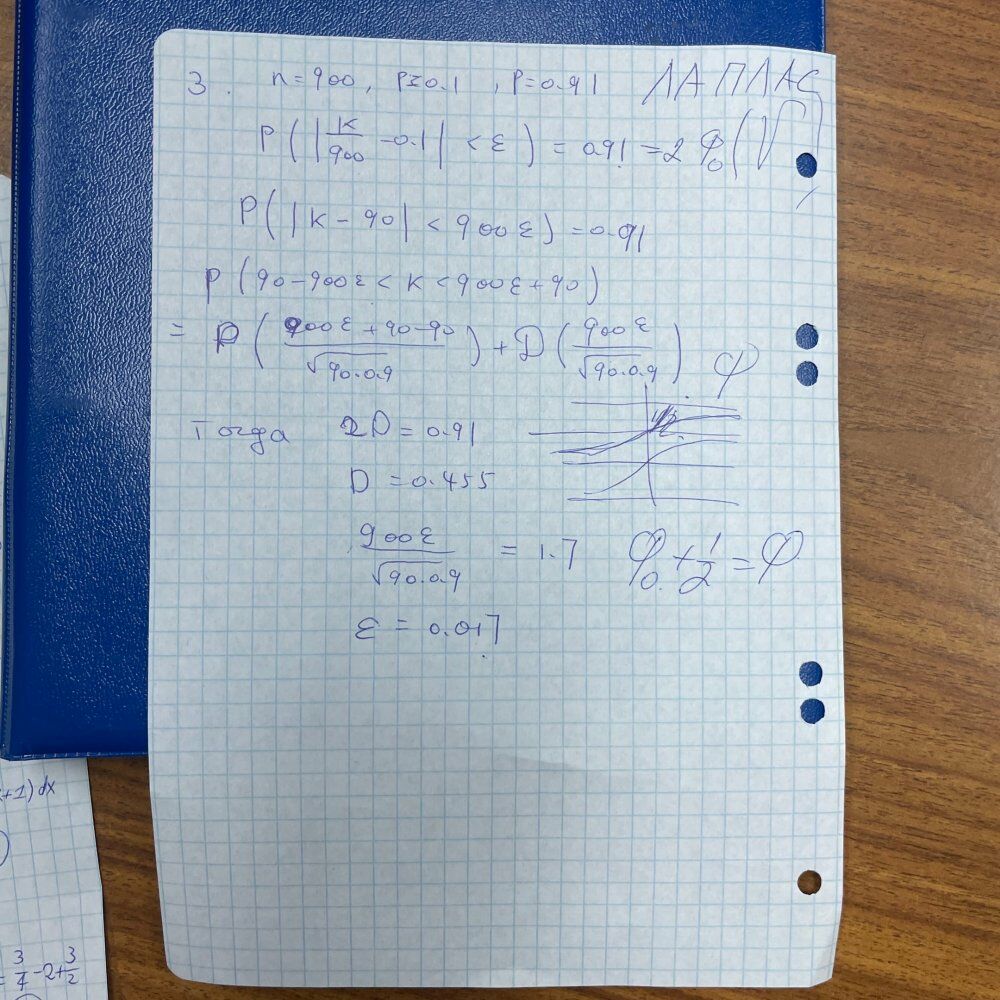 3. n=900, p=0.1, P=0.91 ЛАПЛАС
P(|K/900 -0.1| < ε) = 0.91 = 2 φ₀(√
P(|K - 90| < 900 ε) = 0.91
P(90-900ε < K < 900ε+90)
= Ф(900ε+90-90/√90·0.9) + Ф(900ε/√90·0.9) φ
Тогда 2Ф = 0.91
Ф = 0.455
900ε/√90·0.9 = 1.7 φ₀ + 1/2 = φ
ε = 0.017
+1)dx
= 3/4 -2+ 3/2